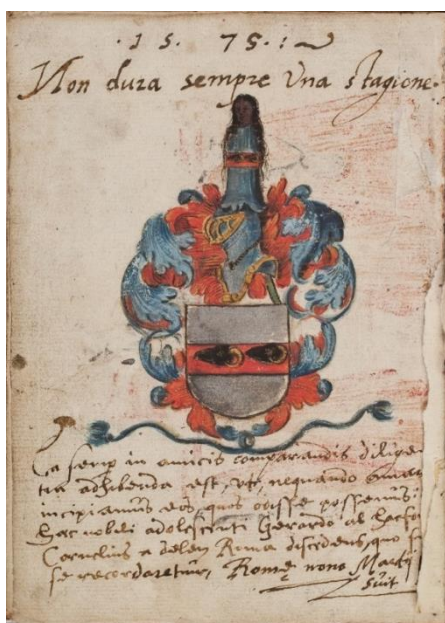 · 1 5 · 7 5 · 1
Non dura sempre Una stagione.
Ea semp in amicis comparandis dilige
tia adhibenda est, ut, nequando amare
incipiamus eos, quos odisse possemus:
hac nobili adolescenti Gerardo al
Cornelius a Romā discedens, quo
se recordaretur, Romę nona Martij